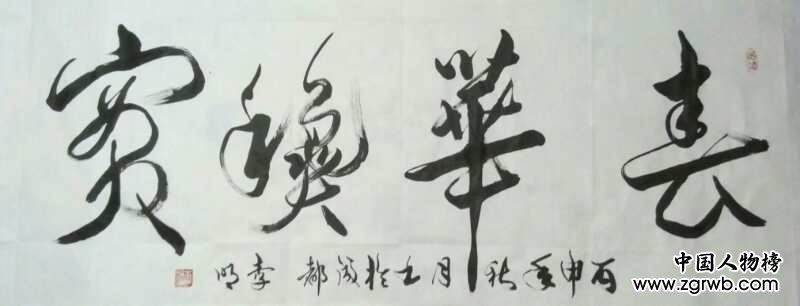 春華穐實
丙申年秋月於都 李明
中国人物榜
www.zgrwb.com